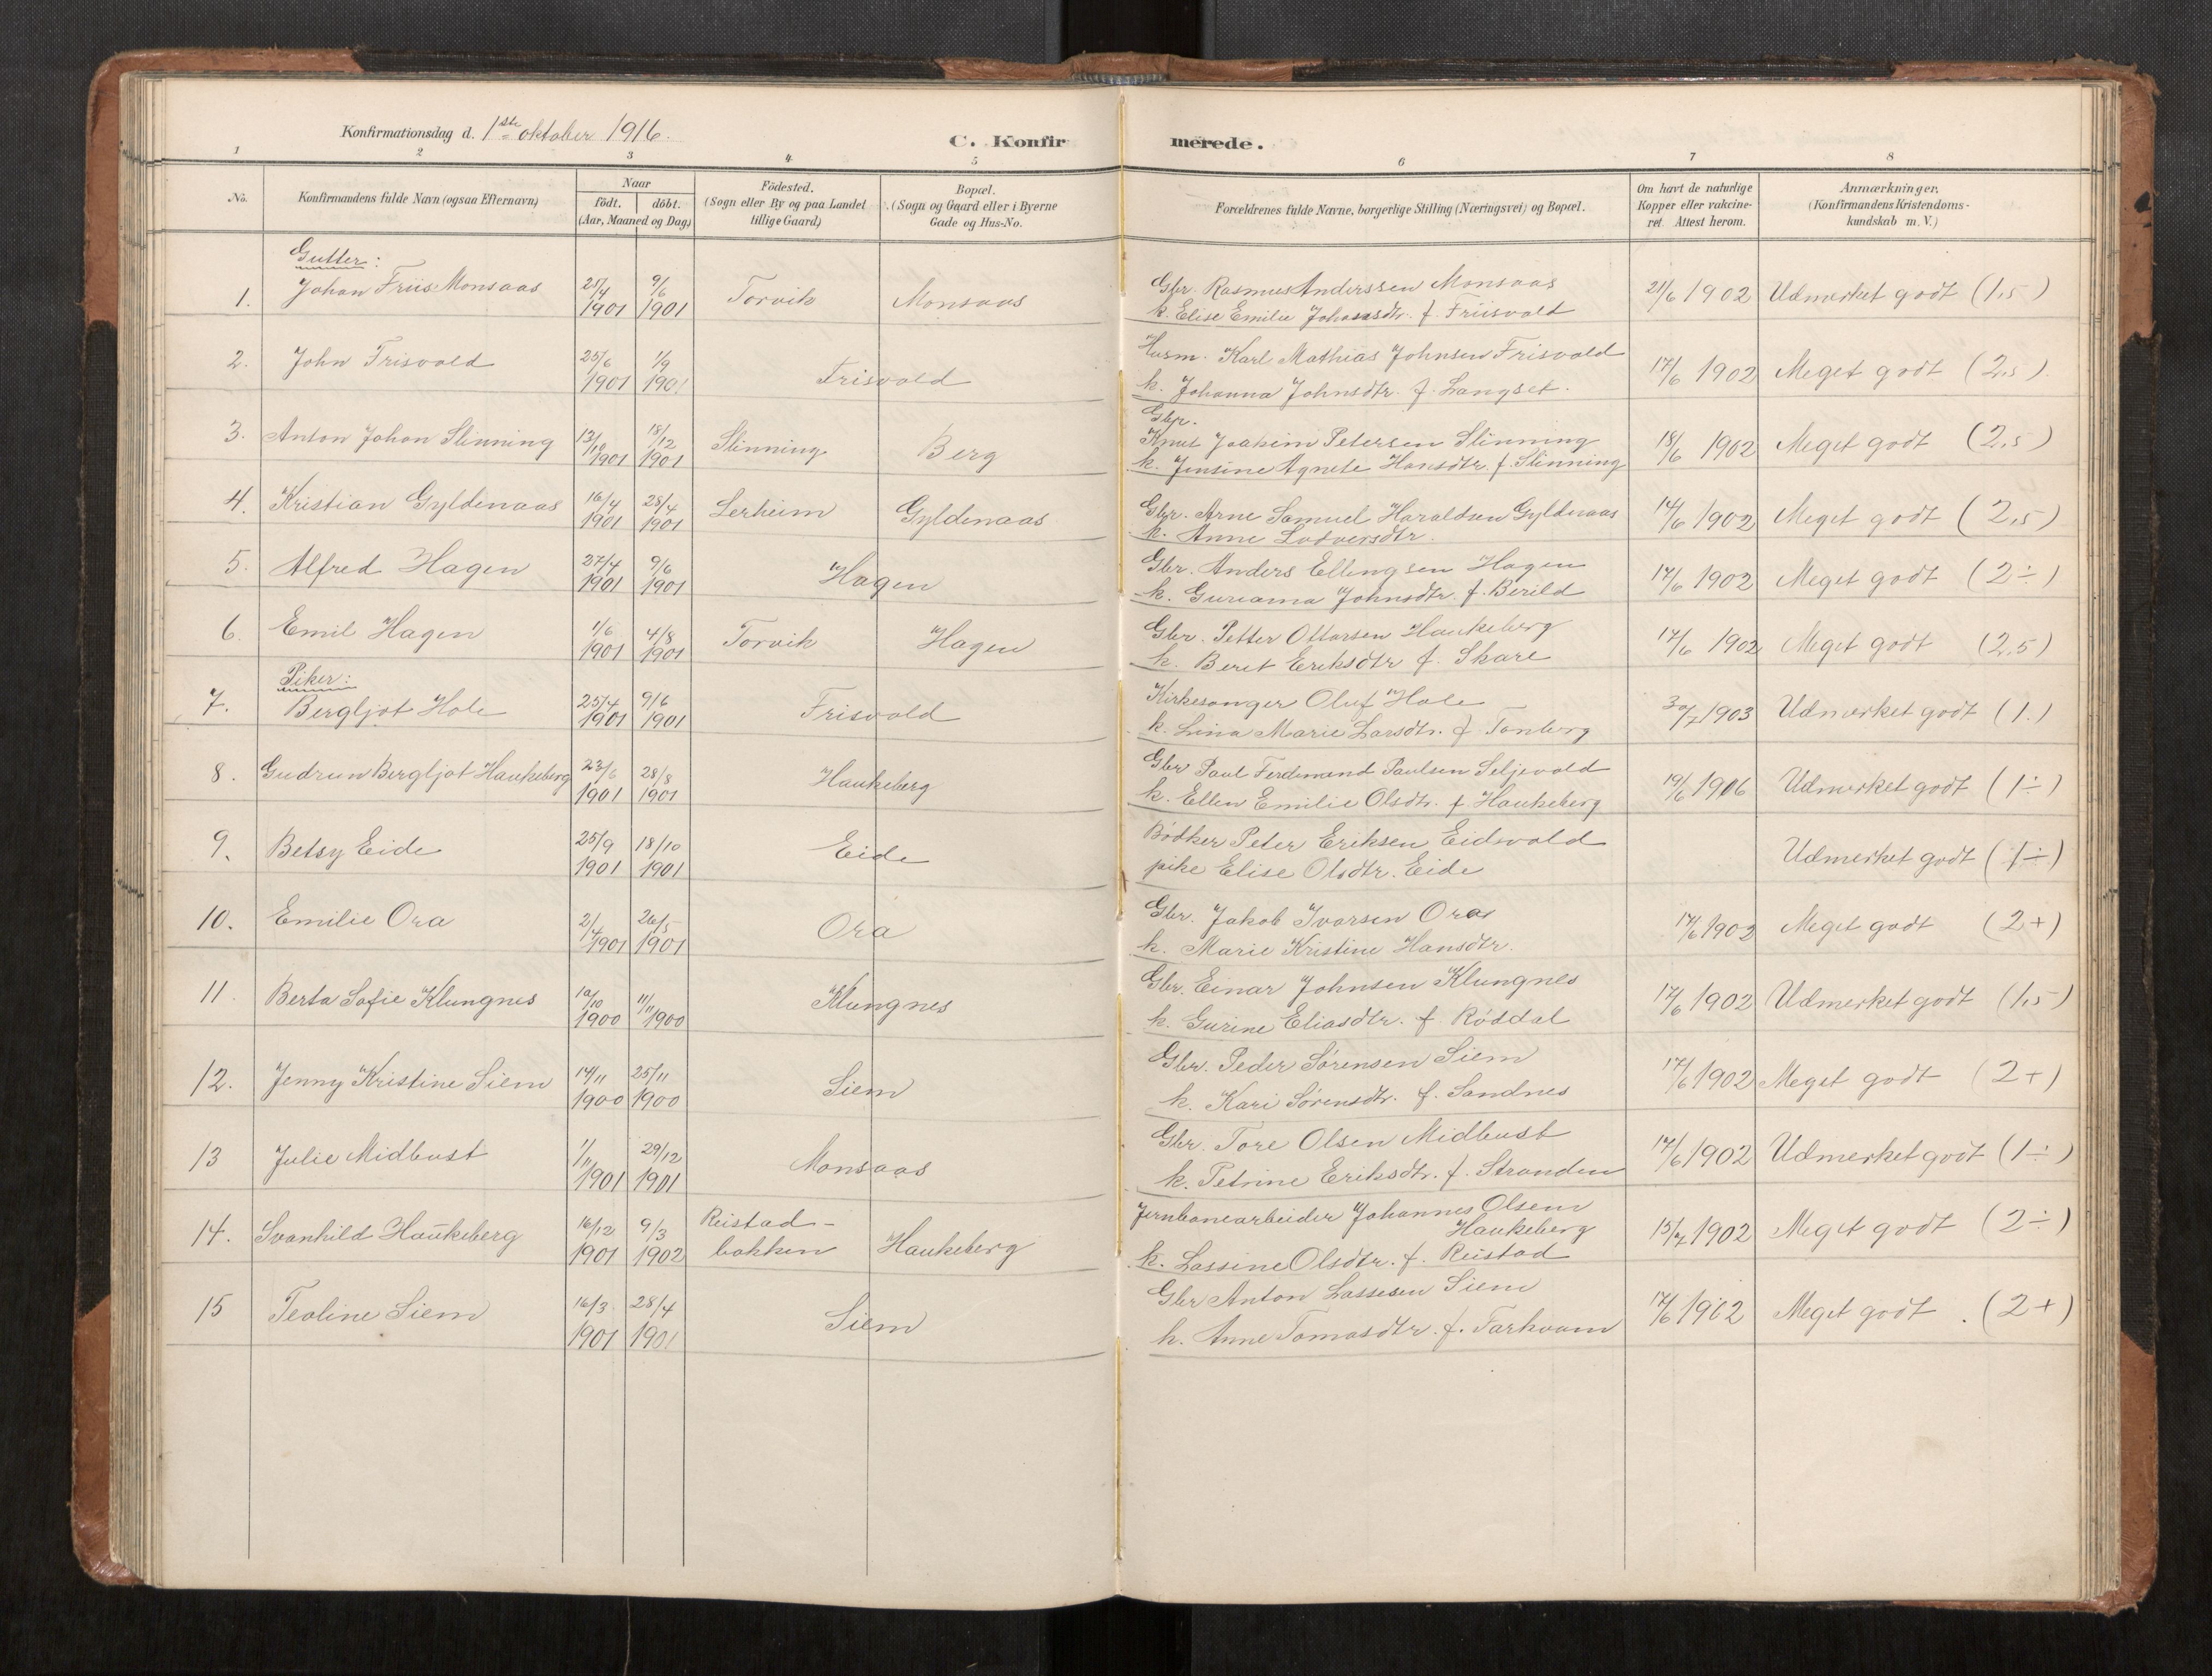 Konfirmationsdag d. 1ste oktober 1916.
C. Konfirmerede.
1 2 3 4 5 6 7 8
No. Konfirmandens fulde Navn (ogsaa Efternavn) Naar födt. döbt. (Aar, Maaned og Dag) Födested. (Sogn eller By og paa Landet tillige Gaard) Bopæl. (Sogn og Gaard eller i Byerne Gade og Hus-No. Forældrenes fulde Navne, borgerlige Stilling (Næringsvei) og Bopæl. Om havt de naturlige Kopper eller vakcineret. Attest herom. Anmærkninger. (Konfirmandens Kristendomskundskab m. V.)
Gutter:
1. Johan Friis Monsaas 25/4 1901 9/6 1901 Torvik Monsaas Gbr. Rasmus Anderssen Monsaas 21/6 1902 Udmerket godt (1,5)
k. Elise Emilie Johansdtr. f. Friisvold
2. John Frisvold 25/6 1901 1/9 1901 Frisvold Husm. Karl Mathias Johnsen Frisvold 17/6 1902 Meget godt (2,5).
k. Johanna Johnsdtr. f. Langset.
3. Anton Johan Slinning 13/10 1901 18/12 1901 Slinning Berg Gbr.
Knut Joakim Petersen Slinning 18/6 1902 Meget godt (2,5)
k. Jensine Agnete Hansdtr. f. Slinning
4. Kristian Gyldenaas 16/4 1901 28/4 1901 Lerheim Gyldenaas Gbr. Arne Samuel Haraldsen Gyldenaas 14/6 1902 Meget godt (2,5)
k. Anne Lodversdtr.
5. Alfred Hagen 27/4 1901 9/6 1901 Hagen Gbr. Anders Ellingsen Hagen 17/6 1902 Meget godt (2÷)
k. Guriama Johnsdtr. f. Berild
6. Emil Hagen 1/6 1901 4/8 1901 Torvik Hagen Gbr. Petter Ottarsen Haukeberg 17/6 1902 Meget godt (2,5)
k. Beret Eriksdtr f. Skare
Piker:
7. Bergljot Hole 25/4 1901 9/6 1901 Frisvold Kirkesanger Oluf Hole 30/7 1903 Udmerket godt (1.)
k. Lina Marie Larsdtr. f. Tonberg
8. Gudrun Bergljot Haukeberg 23/6 1901 28/8 1901 Haukeberg Gbr Paul Ferdinand Paulsen Seljevold 19/6 1906 Udmerket godt (1÷)
k. Ellen Emilie Olsdtr. f Haukeberg
9. Betsy Eide 25/9 1901 18/10 1901 Eide Bödker Peter Eriksen Eidsvold Udmerket godt (1÷)
pike Elise Olsdtr. Eide
10. Emilie Ora 2/4 1901 26/5 1901 Ora Gbr. Jakob Ivarsen Ora 17/6 1902 Meget godt (2+)
k. Marie Kristine Hansdtr.
11. Berta Sofie Klungnes 10/10 1900 11/11 1900 Klungnes Gbr. Einar Johnsen Klungnes 17/6 1902 Udmerket godt (1,5)
k. Gurine Eliasdtr. f. Röddal
12. Jenny Kristine Siem 14/11 1900 25/11 1900 Siem Gbr. Peder Sørensen Siem 17/6 1902 Meget godt (2+)
k. Kari Sörensdtr. f. Sandnes
13 Julie Midbust 1/11 1901 29/12 1901 Monsaas Gbr. Tore Olsen Midbust 17/6 1902 Udmerket godt (1÷)
k. Petrine Eriksdtr. f. Stranden
14. Svanhild Haukeberg 16/12 1901 9/3 1902 Reistad-bakken Haukeberg Jernbanearbeider Johannes Olsen
Haukeberg 15/7 1902 Meget godt (2÷)
k. Lassine Olsdtr. f. Reistad
15 Teoline Siem 16/3 1901 28/4 1901 Siem Gbr Anton Lassesen Siem 17/6 1902 Meget godt. (2+)
k. Anne Tomasdtr. f. Farkvam